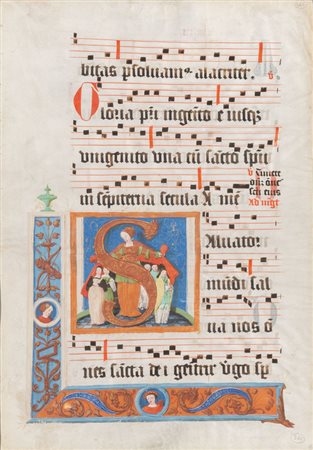 vitas psolvam᷒ alacriter.
Gloria pri ingeito eiusqz
unigenito una cu sancto spu
in sempiterna secula A me
Salvator
mundi sal
va nos o
nes sancta dei genitrix virgo sp